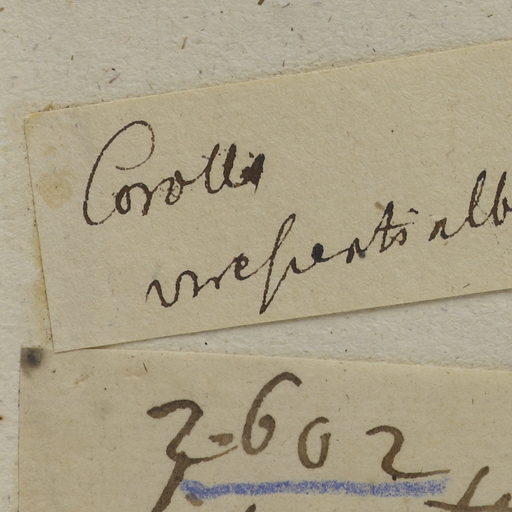 Corolla
virescenti alb
7=602